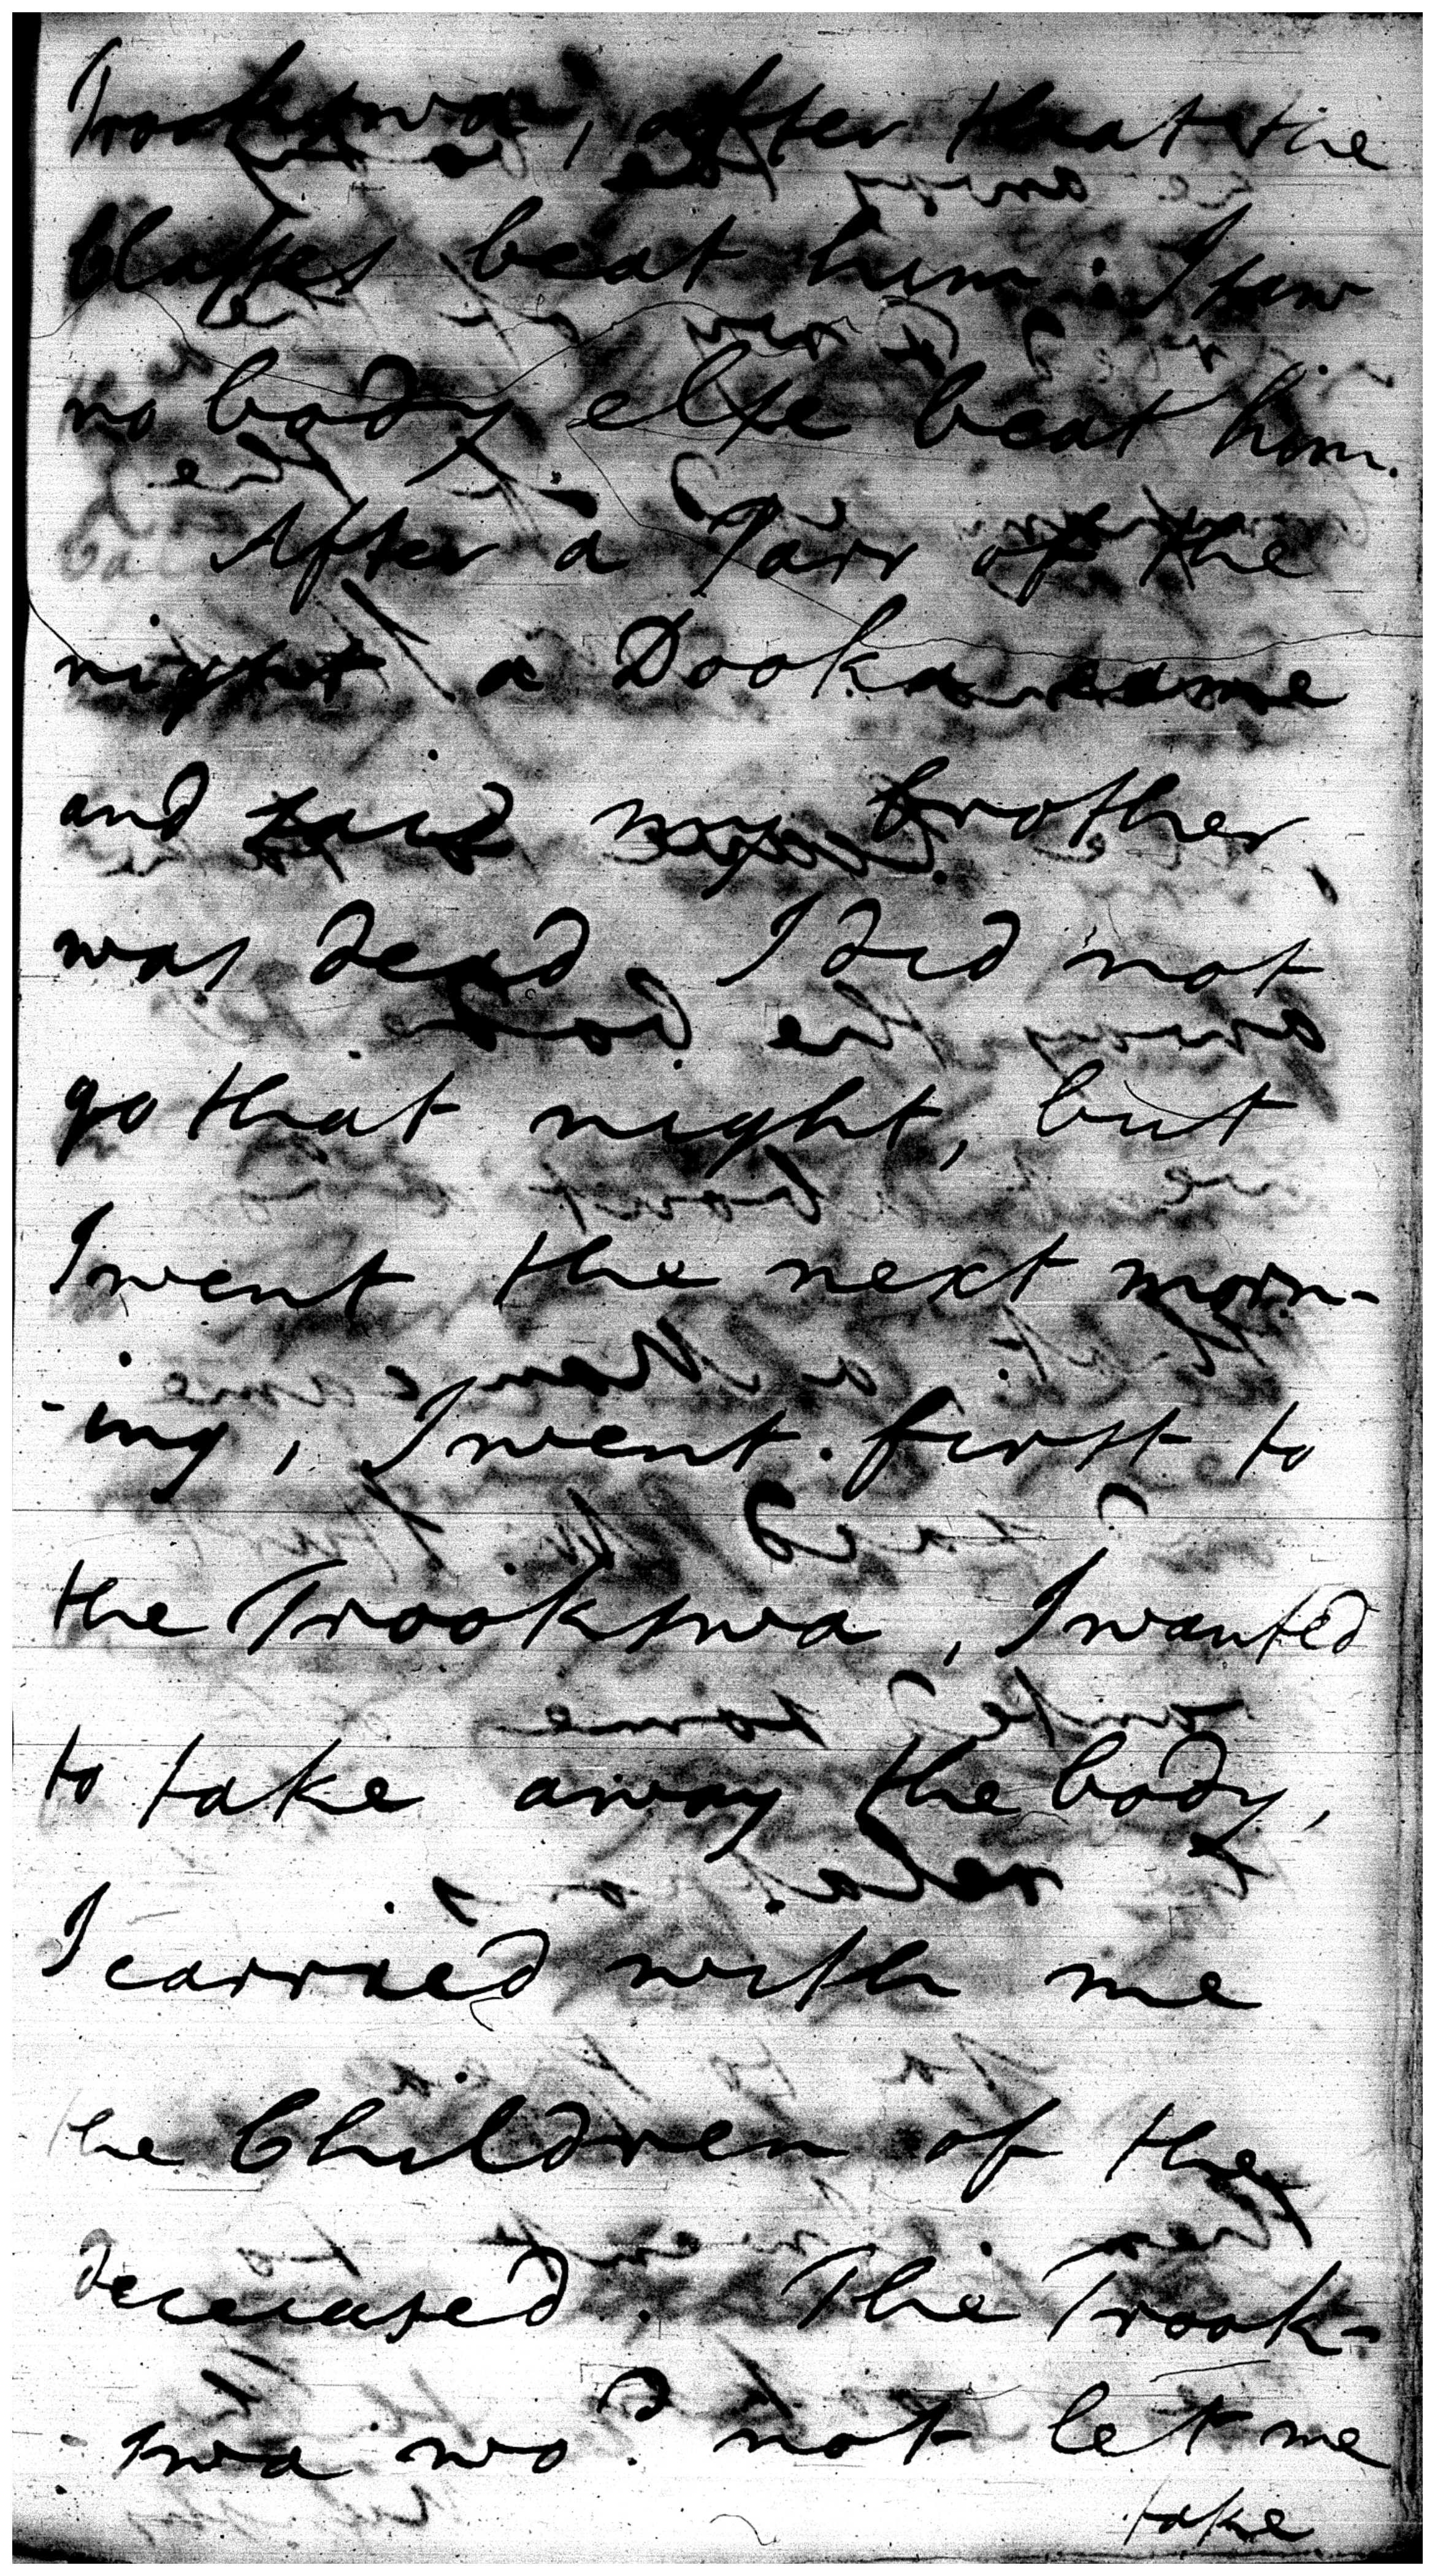 Trookswa, after that the
blasses beat him. I saw
no body else beat him.
After a Parr of the
night a Dooka came
and said my brother
was dead. I did not
go that night, but
I went the next morn-
-ing, I went first to
the Trookswa, I wanted
to take away the body,
I carried with me
the Children of the
deceased. The Trook-
-swa wo.d not let me
take